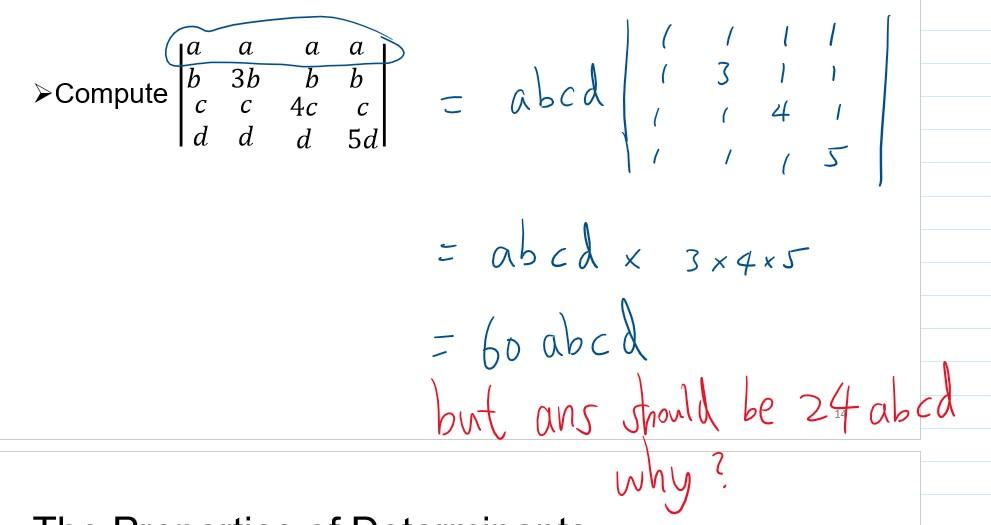 ➢Compute
a a a a
b 3b b b
c c 4c c
d d d 5d
= abcd
1 1 1 1
1 3 1 1
1 1 4 1
1 1 1 5
= abcd × 3×4×5
= 60 abcd
but ans should be 24 abcd
why?
The Properties of Determinants